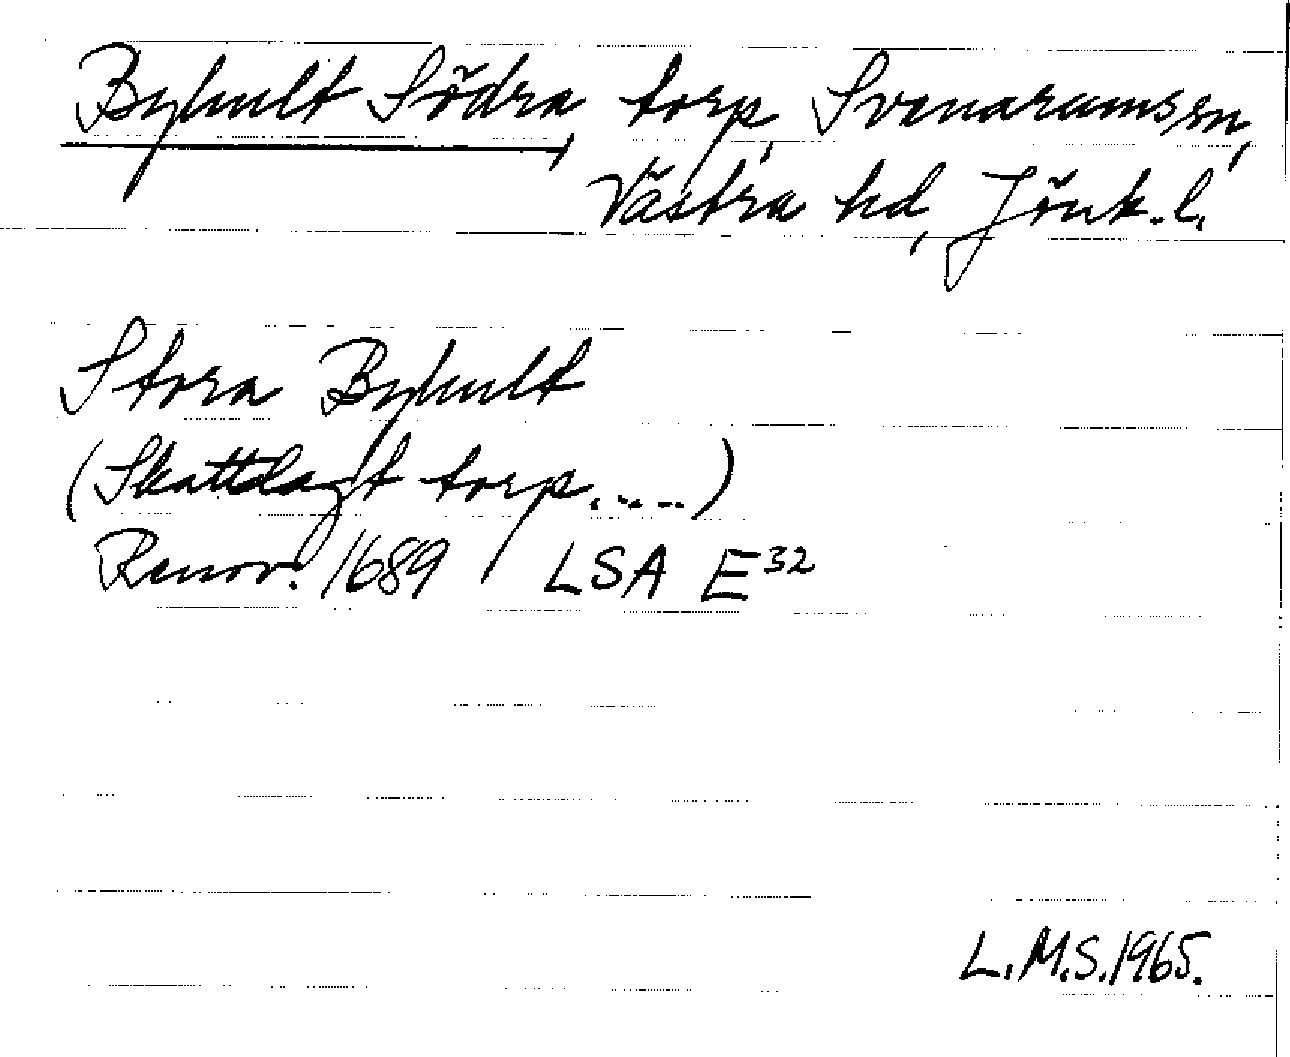 Byhult Södra, torp, Svenarums sn,
Västra hd, Jönk. l.
Stora Byhult
(Skattlagt torp. ....)
Renov. 1689 LSA E32
L.M.S. 1965.